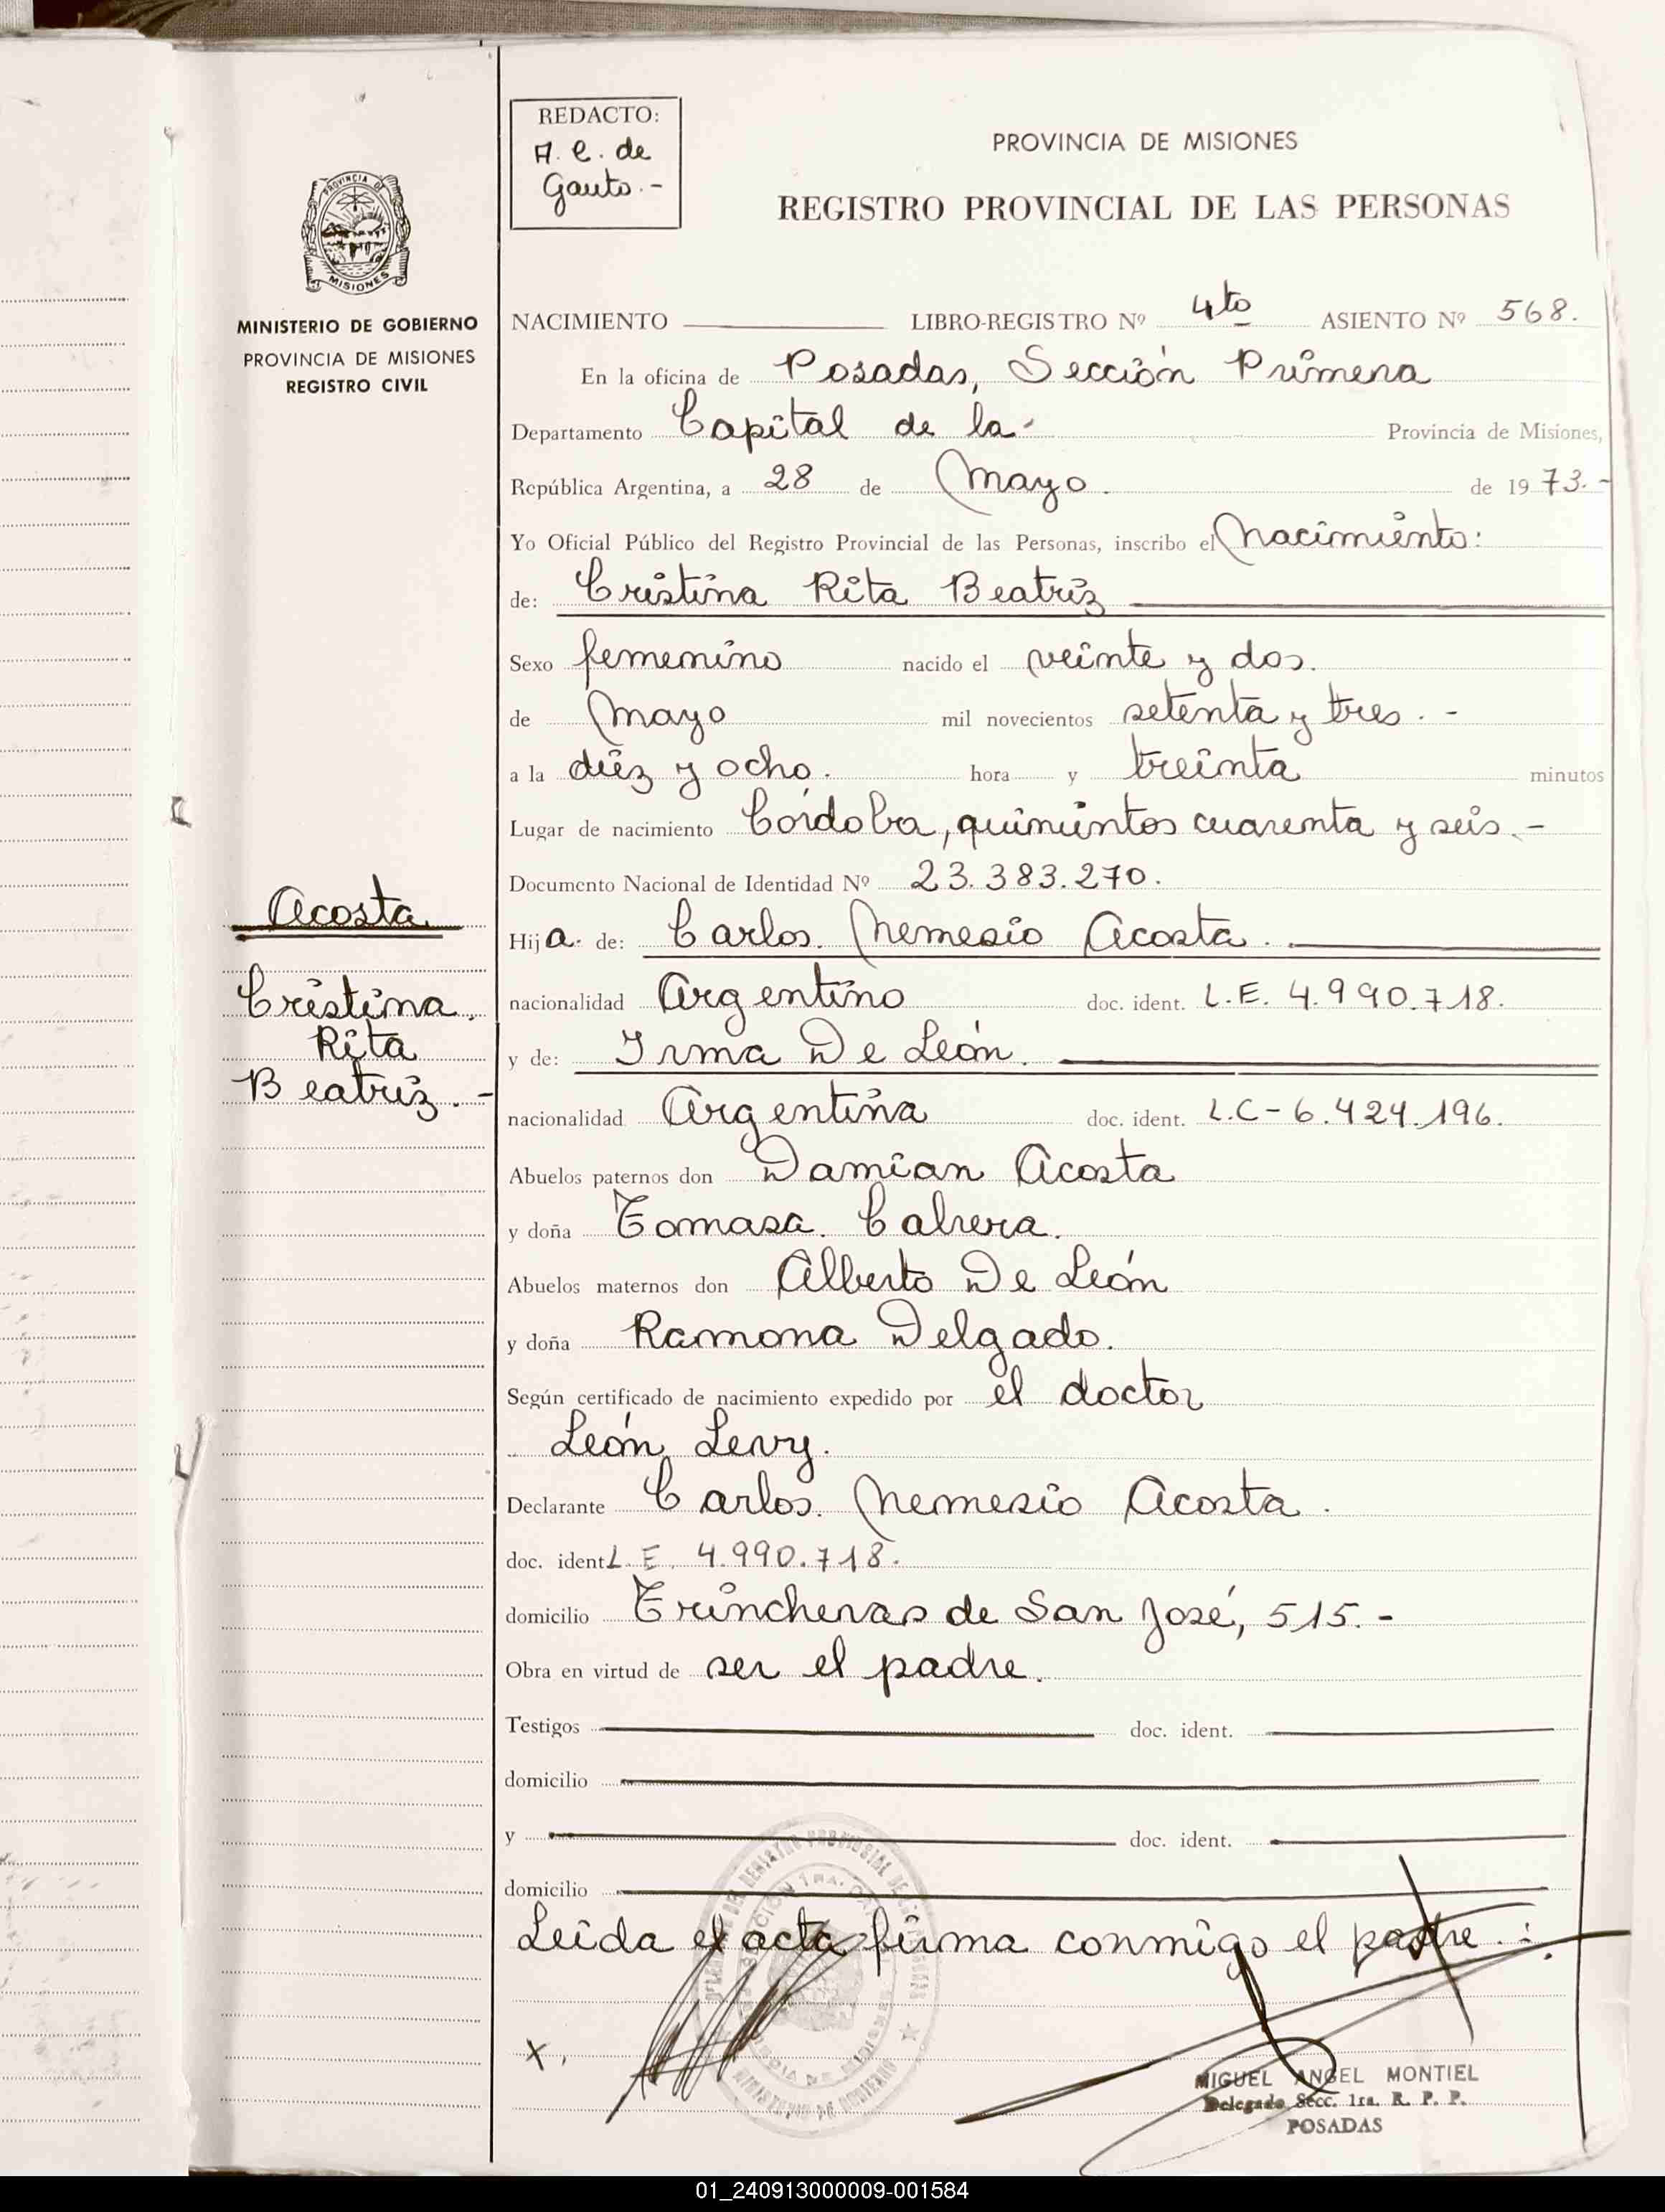 REDACTO:
A. C. de
Gauto. -
PROVINCIA DE MISIONES
REGISTRO PROVINCIAL DE LAS PERSONAS
PROVINCIA DE
MISIONES
MINISTERIO DE GOBIERNO
PROVINCIA DE MISIONES
REGISTRO CIVIL
NACIMIENTO LIBRO-REGISTRO Nº 4to ASIENTO Nº 568.
En la oficina de Posadas, Sección Primera
Departamento Capital de la Provincia de Misiones,
República Argentina, a 28 de Mayo. de 1973.-
Yo Oficial Público del Registro Provincial de las Personas, inscribo el Nacimiento:
de: Cristina Rita Beatriz
Sexo femenino nacido el veinte y dos.
de Mayo mil novecientos setenta y tres. -
a la diez y ocho. hora y treinta minutos
Lugar de nacimiento Córdoba, quinientos cuarenta y seis.-
Documento Nacional de Identidad Nº 23.383.270.
Acosta
Cristina
Rita
Beatriz.-
Hija de: Carlos Nemesio Acosta.
nacionalidad Argentino doc. ident. L.E. 4.990.718.
y de: Irma De León.
nacionalidad Argentina doc. ident. L.C- 6.424.196.
Abuelos paternos don Damian Acosta
y doña Tomasa Cabrera.
Abuelos maternos don Alberto De León
y doña Ramona Delgado.
Según certificado de nacimiento expedido por el doctor
León Levy.
Declarante Carlos Nemesio Acosta.
doc. ident L.E. 4.990.718.
domicilio Trincheras de San José, 515.-
Obra en virtud de ser el padre.
Testigos doc. ident.
domicilio
y doc. ident.
domicilio
Leida el acta firma conmigo el padre.:
x.
MIGUEL ANGEL MONTIEL
Delegado Secc. 1ra. R. P. P.
POSADAS
01_240913000009-001584